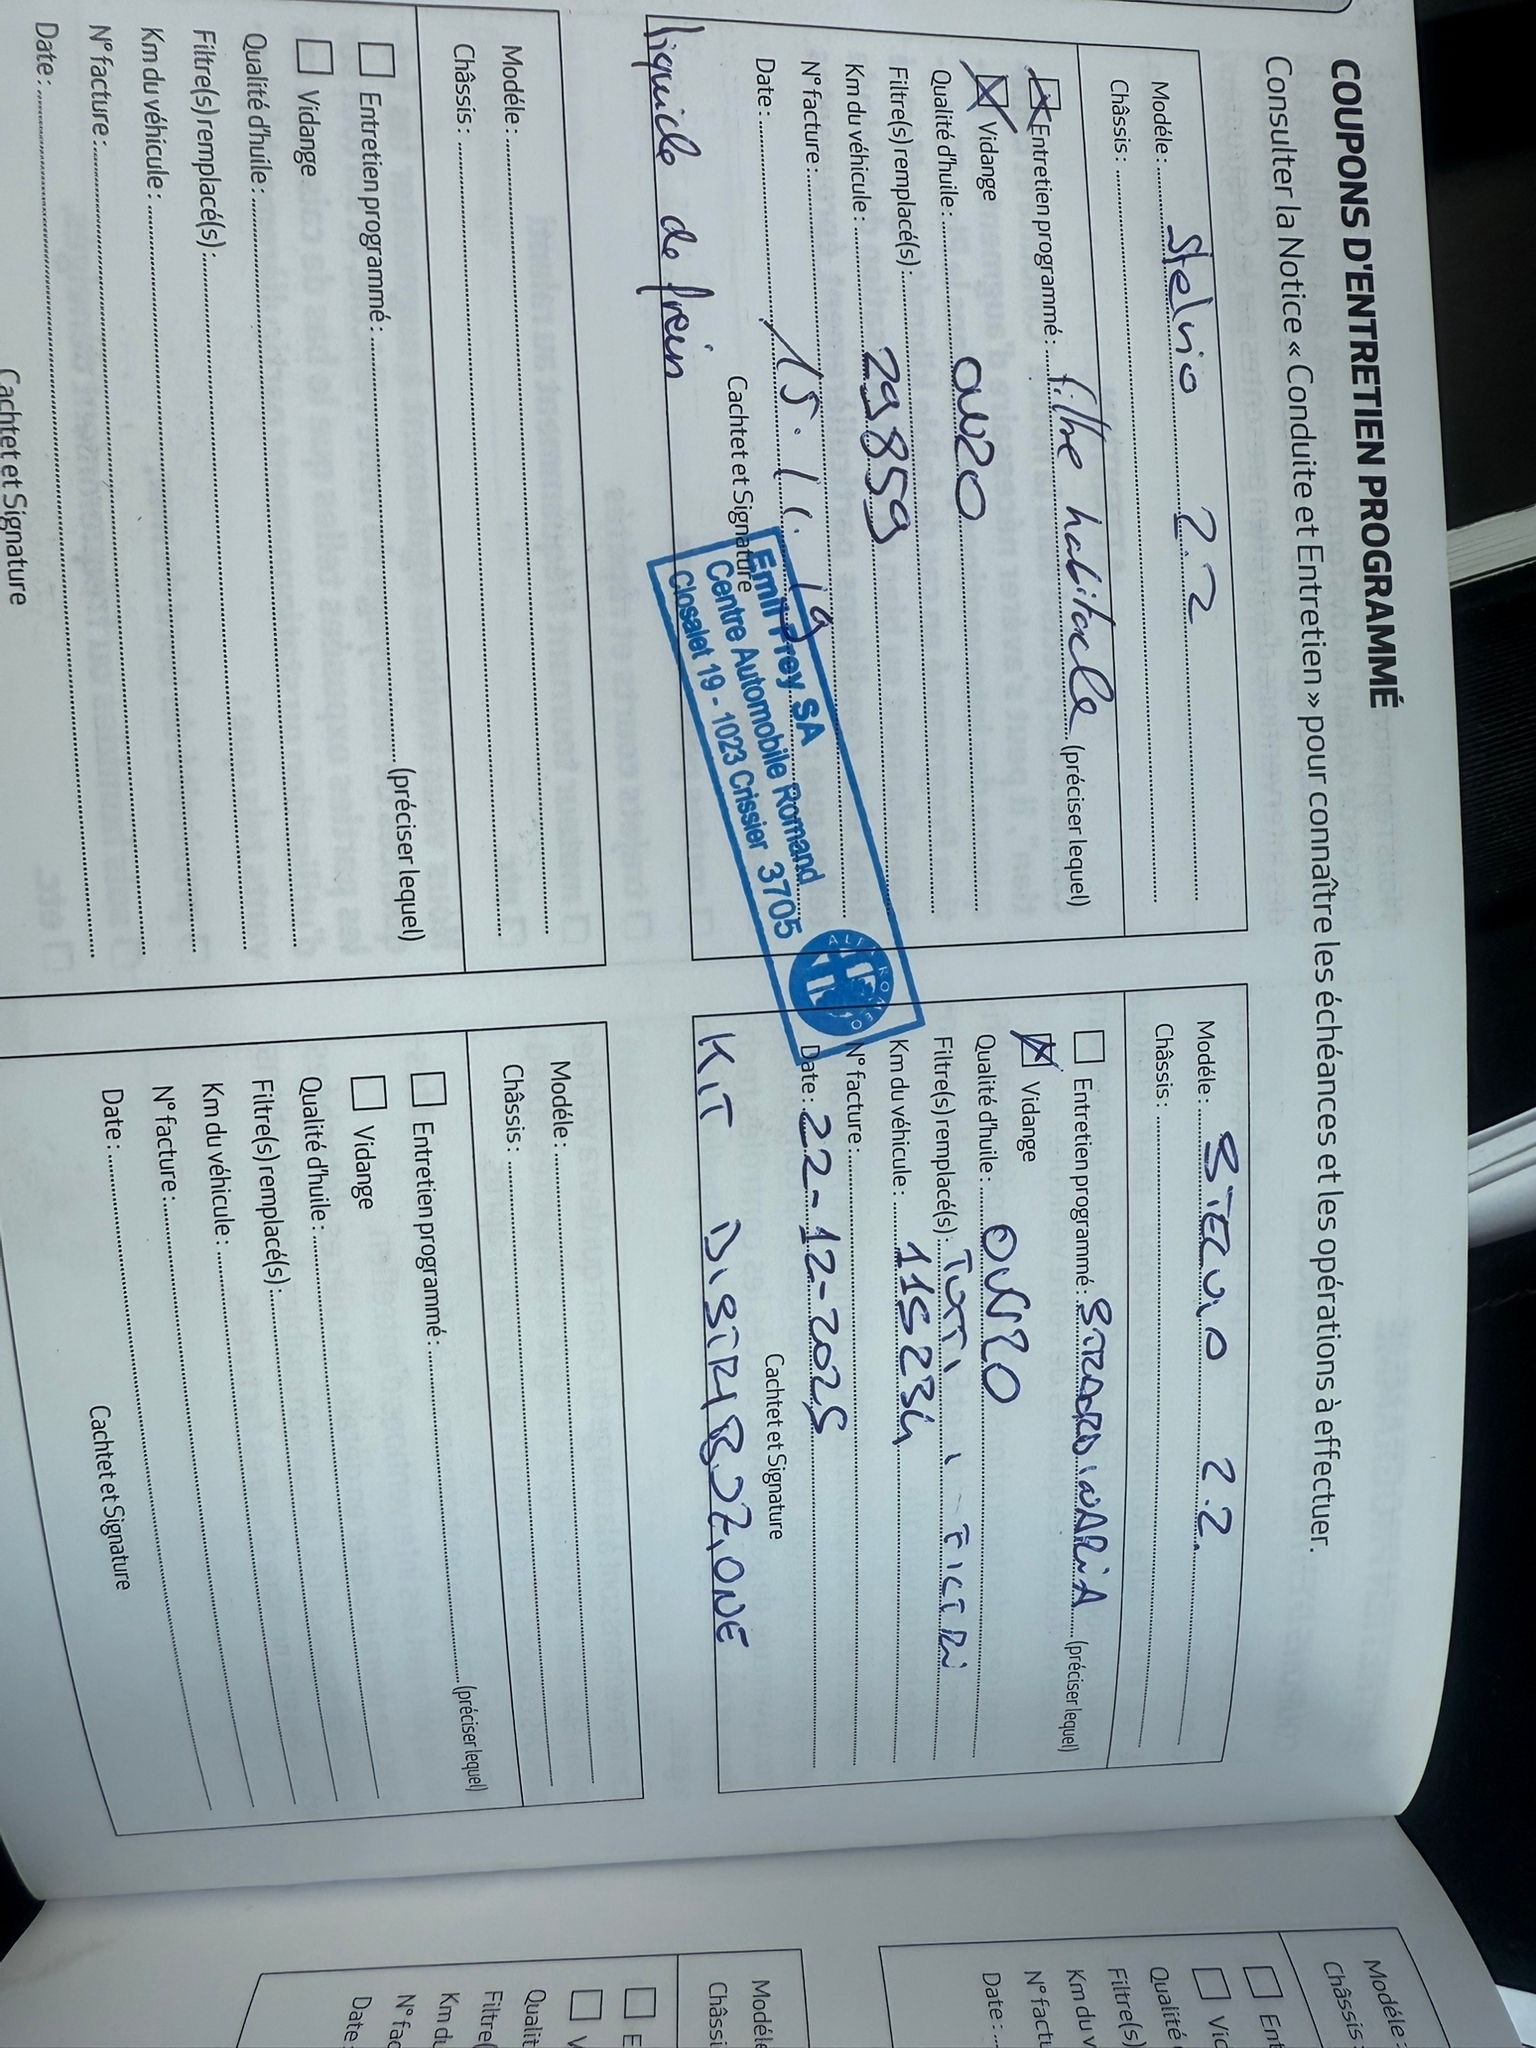 COUPONS D'ENTRETIEN PROGRAMMÉ
Consulter la Notice « Conduite et Entretien » pour connaître les échéances et les opérations à effectuer.
Modéle : Stelvio 2.2
Châssis :
Entretien programmé : filtre habitacle (préciser lequel)
Vidange
Qualité d'huile : 0W20
Filtre(s) remplacé(s) :
Km du véhicule : 29859
N° facture :
Date : 15.11.19
Cachtet et Signature
liquide de frein
Emil Frey SA
Centre Automobile Romand
Closalet 19 - 1023 Crissier 3705
ALFA ROMEO
Modéle : STELVIO 2.2.
Châssis :
Entretien programmé : STRAORDINARIA (préciser lequel)
Vidange
Qualité d'huile : 0W20
Filtre(s) remplacé(s) : TUTTI I FILTRI
Km du véhicule : 115234
N° facture :
Date : 22-12-2025
Cachtet et Signature
KIT DISTRIBUZIONE
Modéle :
Châssis :
Entretien programmé : (préciser lequel)
Vidange
Qualité d'huile :
Filtre(s) remplacé(s) :
Km du véhicule :
N° facture :
Date :
Cachtet et Signature
Modéle :
Châssis :
Entretien programmé : (préciser lequel)
Vidange
Qualité d'huile :
Filtre(s) remplacé(s) :
Km du véhicule :
N° facture :
Date :
Cachtet et Signature
Modéle :
Châssis :
Ent
Vid
Qualité
Filtre(s)
Km du v
N° factu
Date :
Modéle
Châssi
E
V
Qualit
Filtre(
Km du
N° fac
Date :